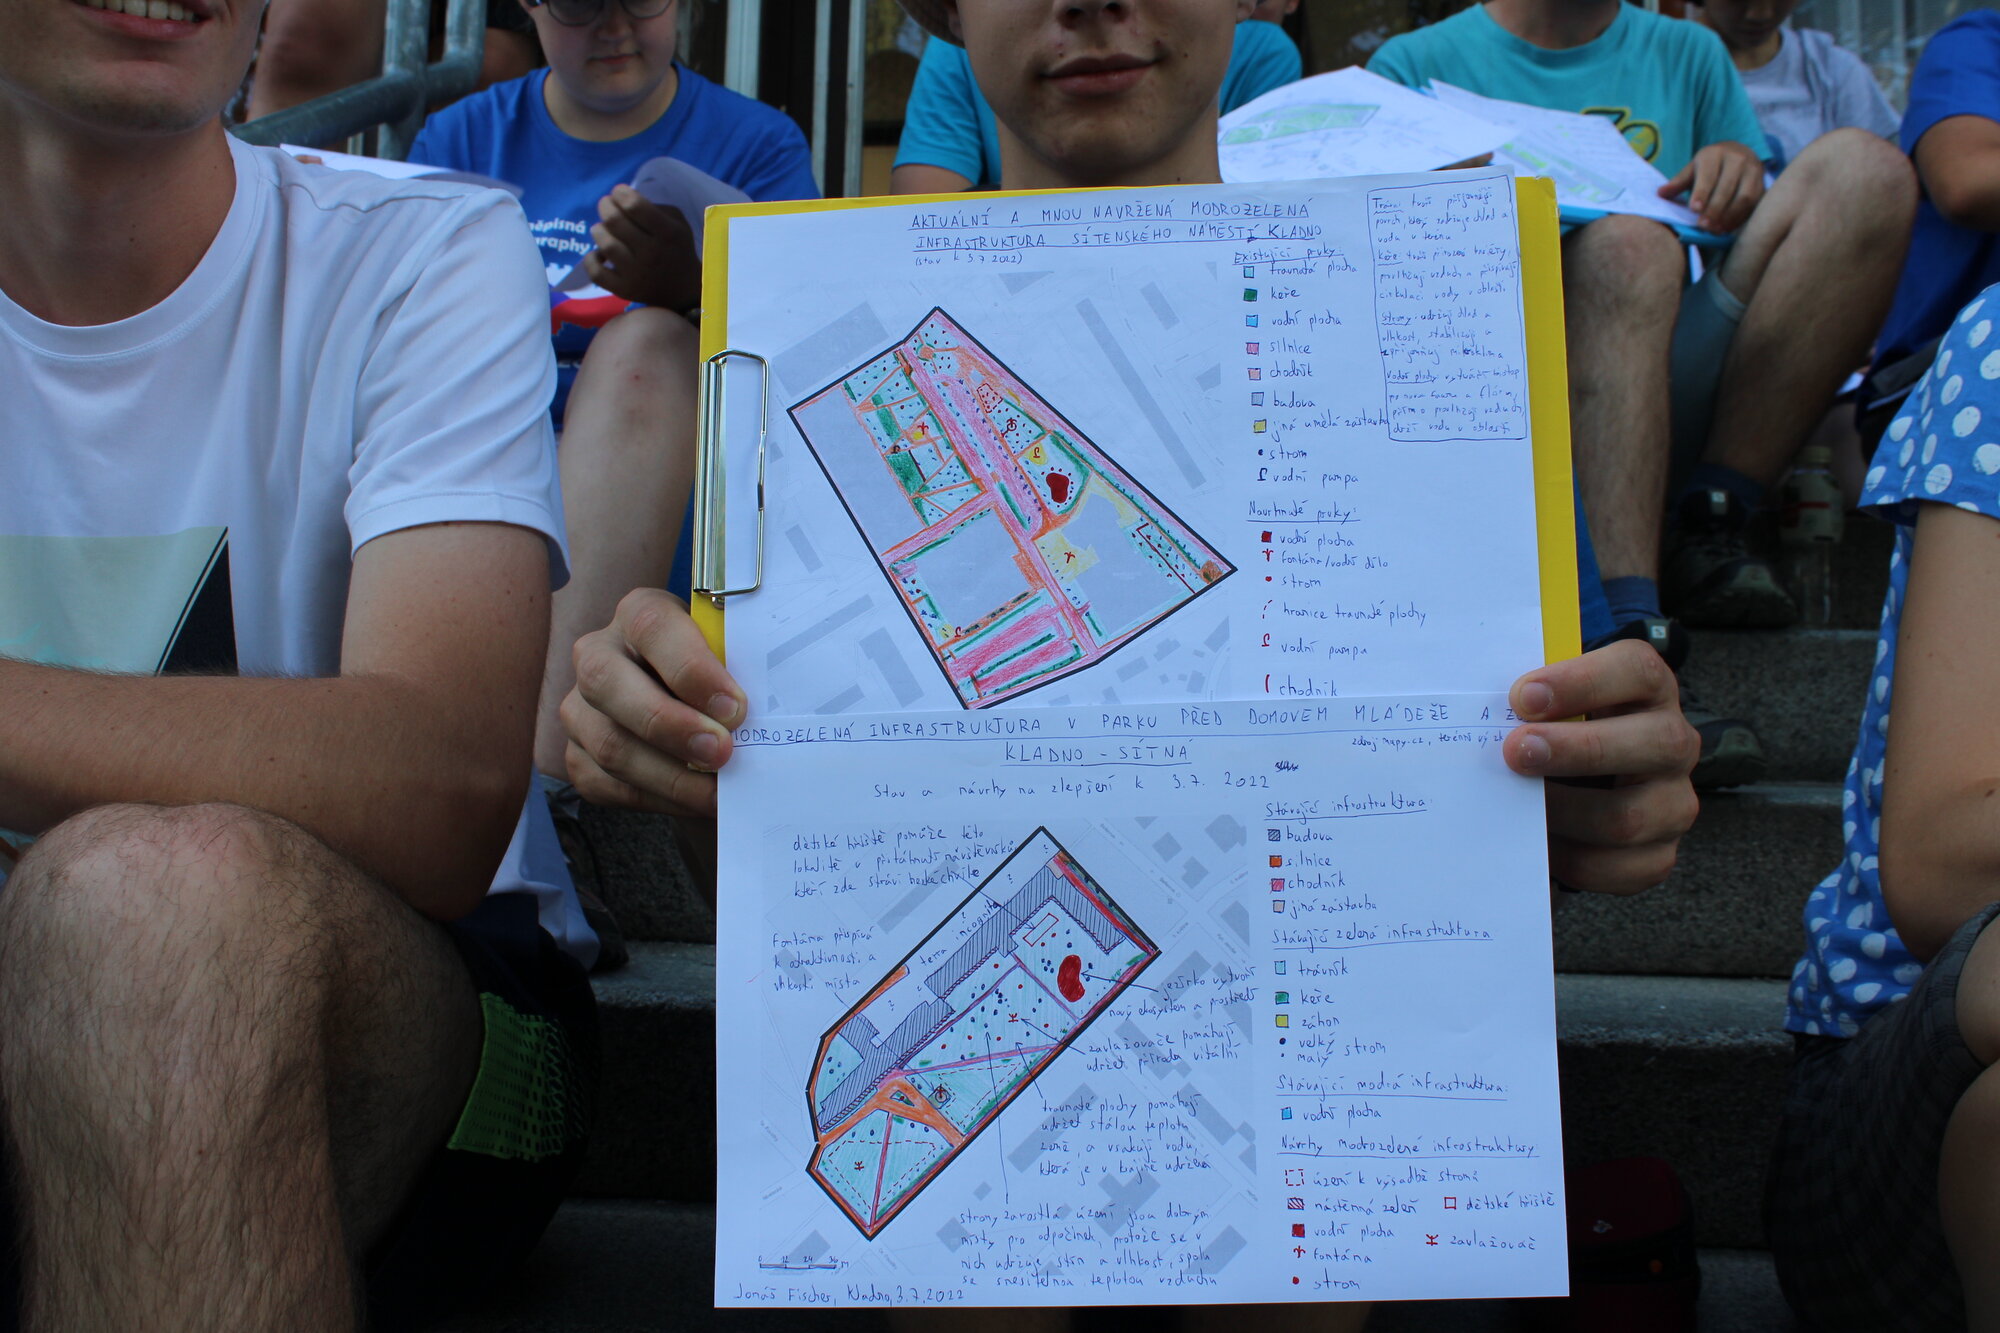 AKTUÁLNÍ A MNOU NAVRŽENÁ MODROZELENÁ
INFRASTRUKTURA SÍTENSKÉHO NÁMĚSTÍ KLADNO
(stav k 3.7.2022)
Existující prvky:
travnatá plocha
keře
vodní plocha
silnice
chodník
budova
jiná umělá zástavba
strom
vodní pumpa
Navrhnuté prvky:
vodní plocha
fontána/vodní dílo
strom
hranice travnaté plochy
vodní pumpa
chodník
Tráva: tvoří příjemnější
povrch, který udržuje chlad a
vodu v terénu
keře tvoří přirozené bariéry,
prodlužují vzduch a přispívají
cirkulaci vody v oblasti
Stromy: udržují chlad a
vlhkost, stabilizují a
zpříjemňují mikroklima
Vodní plochy vytváří
pro novou faunu a flóru,
vzduch,
drží vodu v oblasti
MODROZELENÁ INFRASTRUKTURA V PARKU PŘED DOMOVEM MLÁDEŽE A
KLADNO - SÍTNÁ
zdroj mapy.cz, terénní
Stav a návrhy na zlepšení k 3.7. 2022
dětské hřiště pomůže této
lokalitě v přitáhnutí návštěvníků,
kteří zde stráví hezké chvíle
Fontána přispívá
k atraktivnosti a
vlhkosti místa
terra incognita
jezírko vytvoří
nový ekosystém a prostředí
zavlažovače pomáhají
udržet přírodu vitální
travnaté plochy pomáhají
udržet stálou teplotu
země, a vsakují vodu,
která je v krajině udržená
stromy zarostlá území jsou dobrými
místy pro odpočinek, protože se v
nich udržuje stín a vlhkost, spolu
se snesitelnou teplotou vzduchu
Stávající infrastruktura:
budova
silnice
chodník
jiná zástavba
Stávající zelená infrastruktura
trávník
keře
záhon
velký strom
malý
Stávající modrá infrastruktura:
vodní plocha
Návrhy modrozelené infrastruktury
území k výsadbě stromů
nástěnná zeleň
dětské hřiště
vodní plocha
zavlažovač
fontána
strom
0 12 24 36 m
Jonáš Fischer, Kladno, 3.7.2022